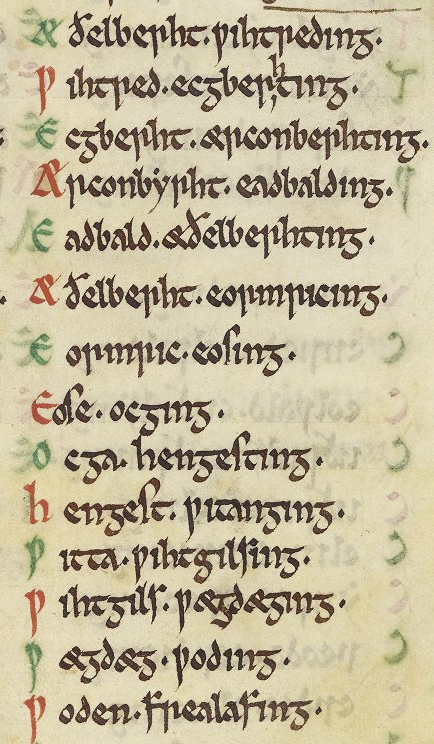 Æðelberht· ǷihtredinᏵ·
Ƿihtred· ecgberhting·
Ecgberht· ærconberhting·
Ærconbẏrht· eadbalding·
Eadbald· æðelberhting·
Æðelberht· eormricing·
Eormric· eosing·
Eose· ocging·
Ocga· hengesting·
hengest· ƿitanging·
Ƿitta· ƿihtgilsing·
Ƿihtgils· ƿægdæging·
Ƿægdæg· ƿoding·
Ƿoden· frealafing·